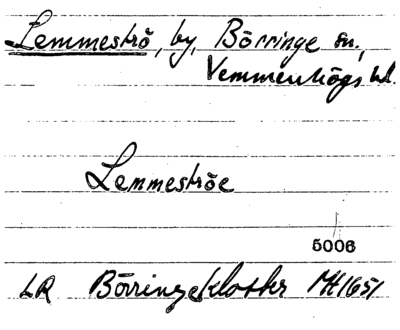 Lemmeströ, by, Börringe sn.,
Vemmenhögs hd.
Lemmeströe
5006
LR Börringekloster Mt 1651